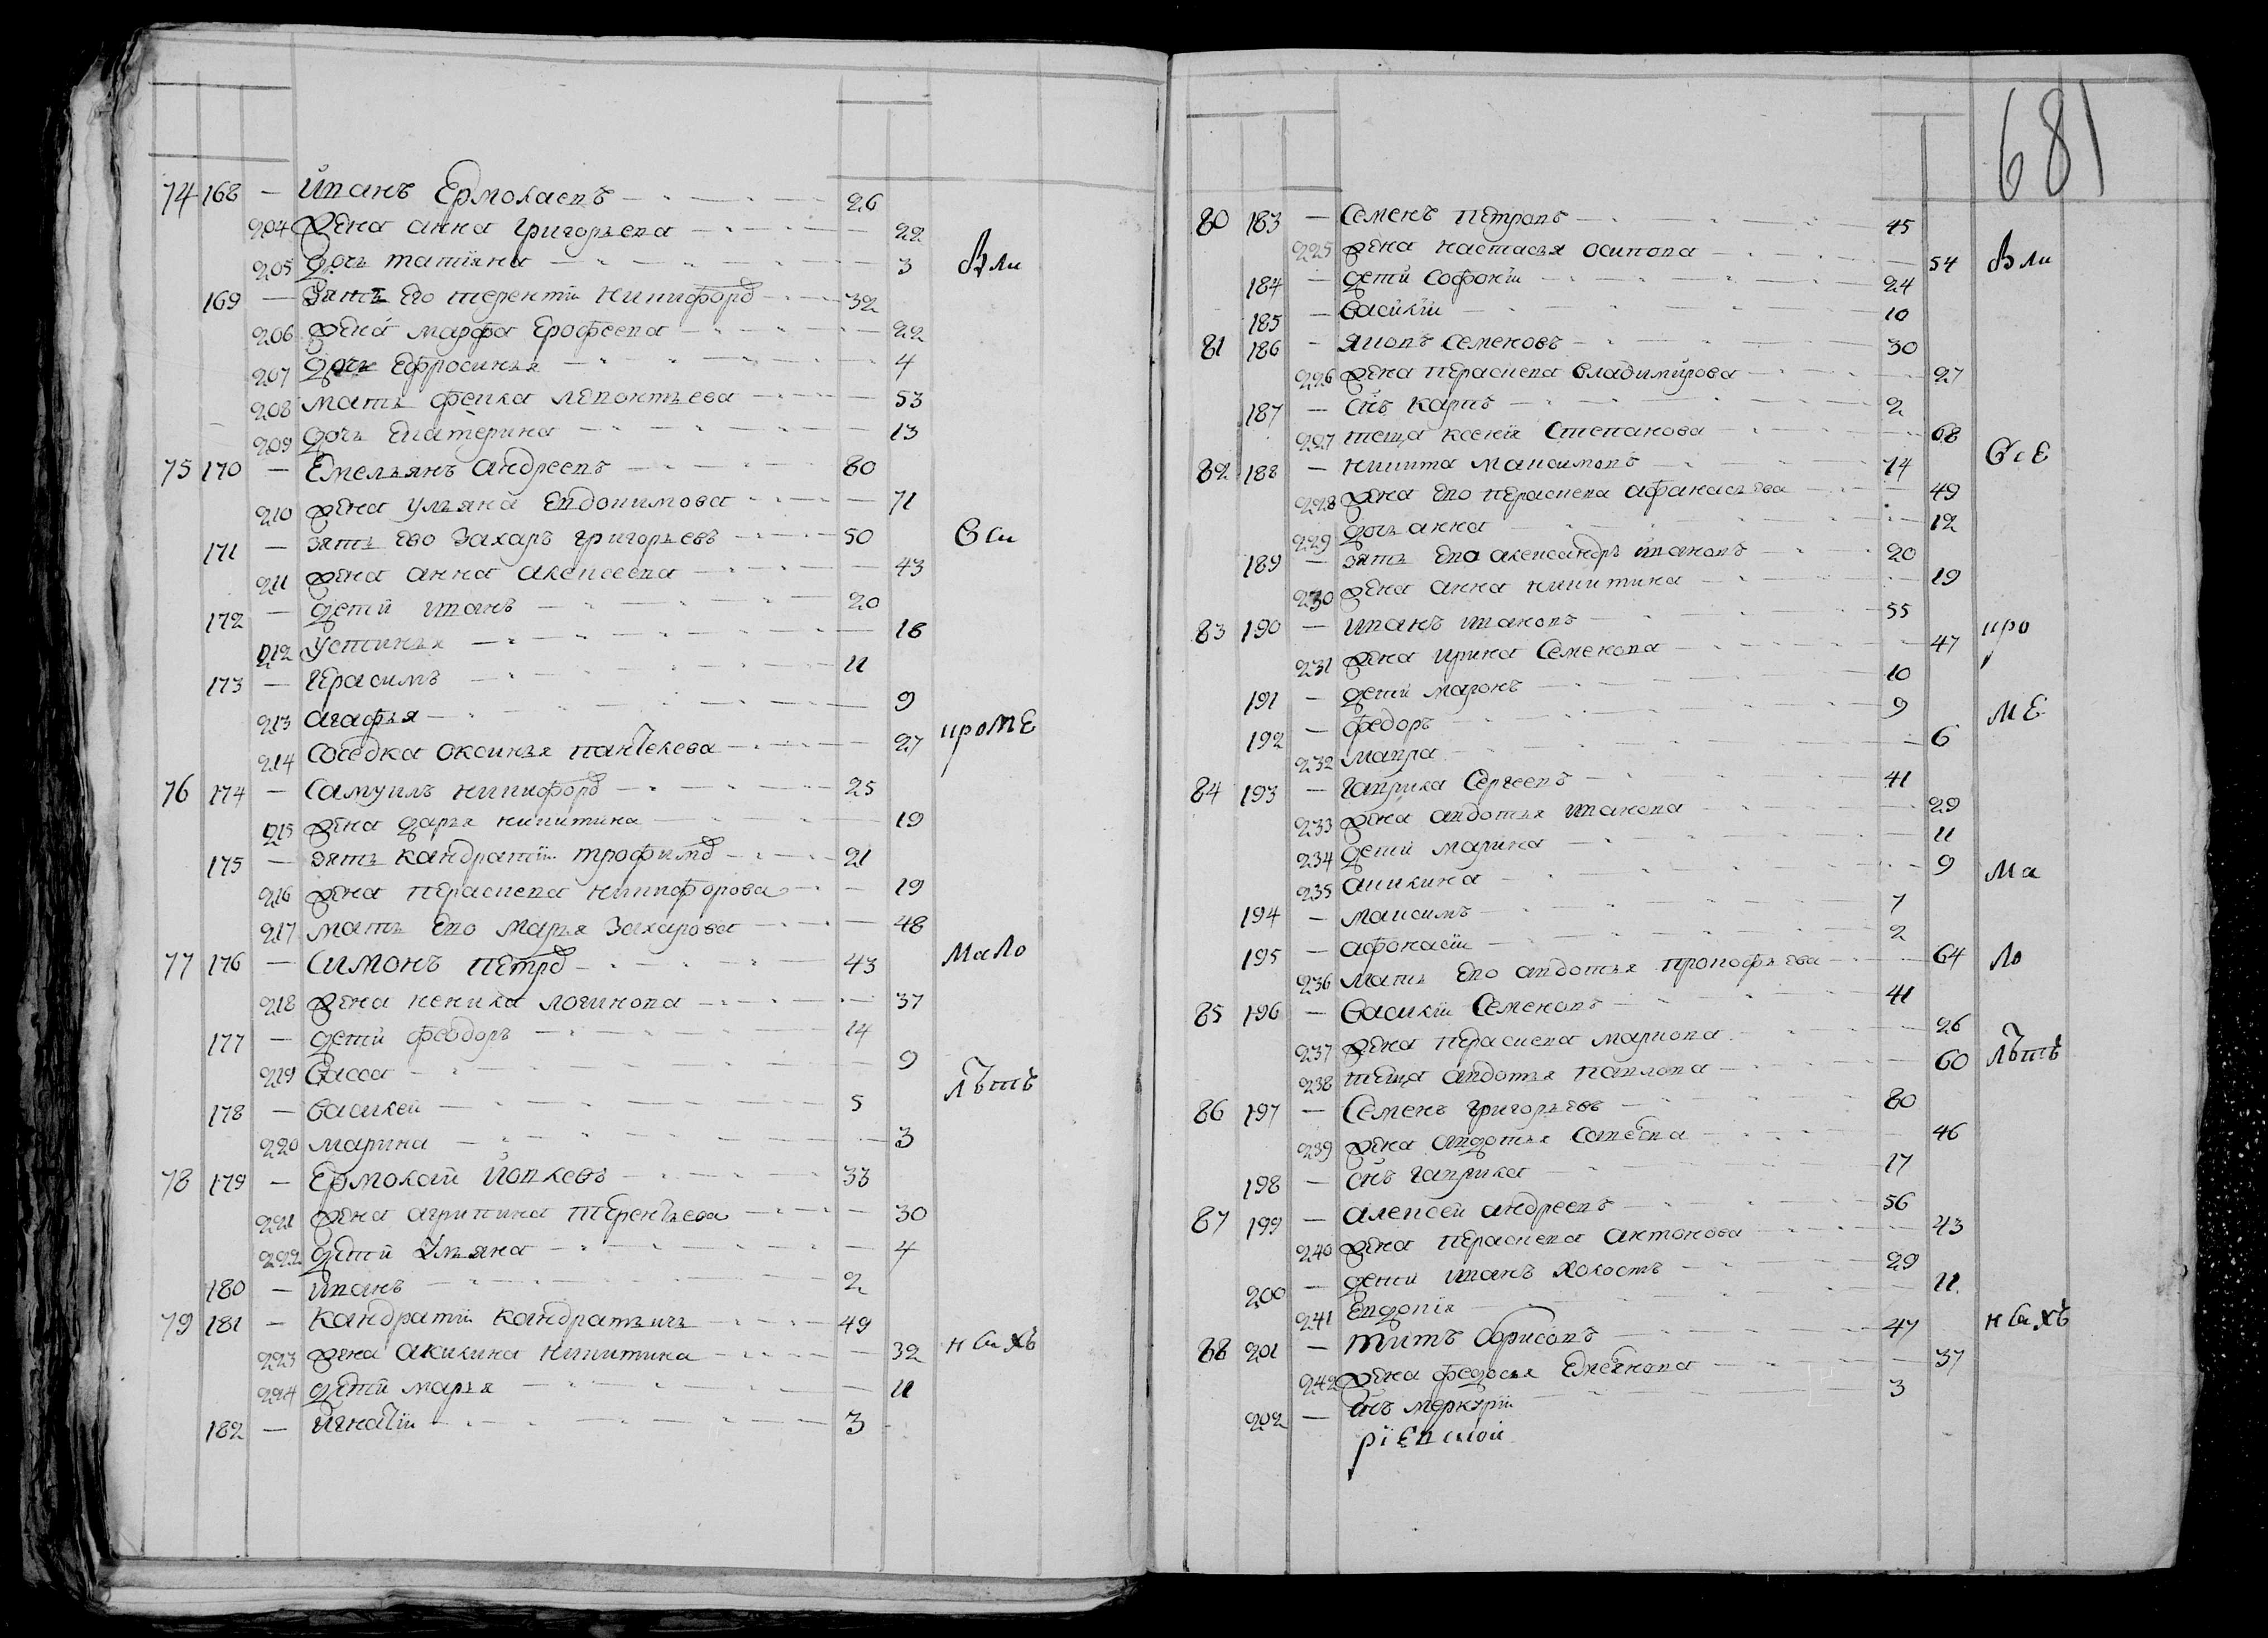 74 168 — Иванъ Ермолаевъ 26
204 жена анна григорьева 22
205 дочь татіяна 3 Вли
169 — Зять его терентїи никифоро͏в 32
206 жена марфа ерофеева 22
207 дочь ефросинья 4
208 мать фекла леонтьева 53
209 дочь екатерина 13
75 170 — Емельянъ андреевъ 80
210 жена ульяна евдокимова 71
171 — зять ево Захаръ григорьевъ 50 Вси
211 жена анна алексеева 43
172 — дети иванъ 20
212 устинья 18
173 — герасимъ 11
213 агафья 9
214 соседка оксинья пантелева 27 кроме
76 174 — Самуилъ никифоро͏в 25
215 жена дарья никитина 19
175 — зять кандратїи трофимо͏в 21
216 жена параскева никифорова 19
217 мать ево марья Захарова 48
77 176 — Симонъ петро͏в 43 мало
218 жена неника логинова 37
177 — дети феодоръ 14
219 Васса 9
178 — василеи 5 лѣтъ
220 марина 3
78 179 — Ермолай Иовлевъ 33
221 жена агрипина терентьева 30
222 дети Ульяна 4
180 — иванъ 2
79 181 — Кандратїи Кандратьичь 49
223 жена акилина никитина 32 нихъ
224 дети марья 11
182 — игнатїи 3
681
80 183 — Семенъ петровъ 45
225 жена настасья осипова 54 Вли
184 — дети Софонїи 24
185 — василїи 10
81 186 — яковъ семеновъ 30
226 жена параскева владимирова 27
187 — снъ карпъ 2
227 теща ксенїя Степанова 68
82 188 — никита максимовъ 74 все
228 жена ево параскева афанасьева 49
229 дочь анна 12
189 — зять ево александръ ивановъ 20
230 жена анна никитина 19
83 190 — иванъ ивановъ 55 кро
231 жена ирина Семенова 47
191 — дети маронъ 10
192 — федоръ 9 ме
232 мавра 6
84 193 — гаврила Сергеевъ 41
233 жена авдотья иванова 29
234 дети марина 11
235 акилина 9 ма
194 — максимъ 7
195 — афонасїи 2
236 мать ево авдотья прокофьева 64 ло
85 196 — Василїи Семеновъ 41
237 жена параскева маркова 26
238 теща авдотья павлова 60 лѣтъ
86 197 — Семенъ григорьевъ 80
239 жена авдотья савеева 46
198 — снъ гаврила 17
87 199 — алексеи андреевъ 56
240 жена параскева антонова 43
200 — дети иванъ холостъ 29
241 евдокїя 11
88 201 — титъ борисовъ 47 нихъ
242 жена федосья емелянова 37
202 — снъ меркурїи 3
рїевской